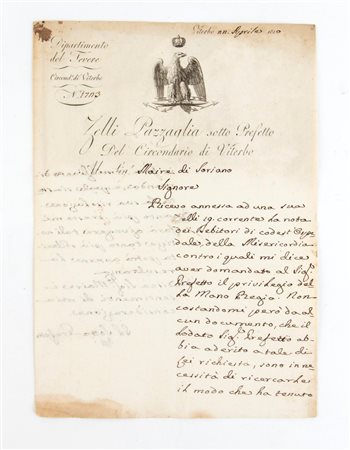 Viterbo 22 Aprile 1810
Dipartimento
del Tevere
Circond.° di Viterbo
N.° 1703
Zelli Pazzaglia sotto Prefetto
Del Circondario di Viterbo
Maire di Soriano
Signore
Ricevo annessa ad una sua
delli 19. corrente la nota
dei Debitori di codest' Ospe
dale della Misericordia
contro i quali mi dice
aver domandato al Sig.r
Prefetto il privilegio del
la Mano Regia. Non
costandomi però da al
cun documento, che il
Lodato Sig.r Prefetto ab-
bia aderito a tale di
Lei richiesta, sono in ne
cessità di ricercarle
il modo che ha tenuto